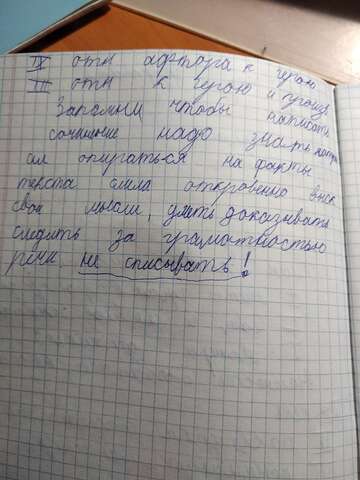 IV отн афтора к герою
III отн к герою и произ
Запомни чтобы написать
сочинение надо знать
опираться на факты
текста смела откровенно выск
свои мысли, уметь доказывать
следить за граматностью
речи. не списывать!